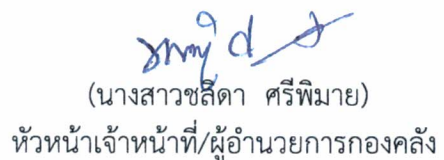 (นางสาวชลิดา ศรีพิมาย)
หัวหน้าเจ้าหน้าที่/ผู้อำนวยการกองคลัง